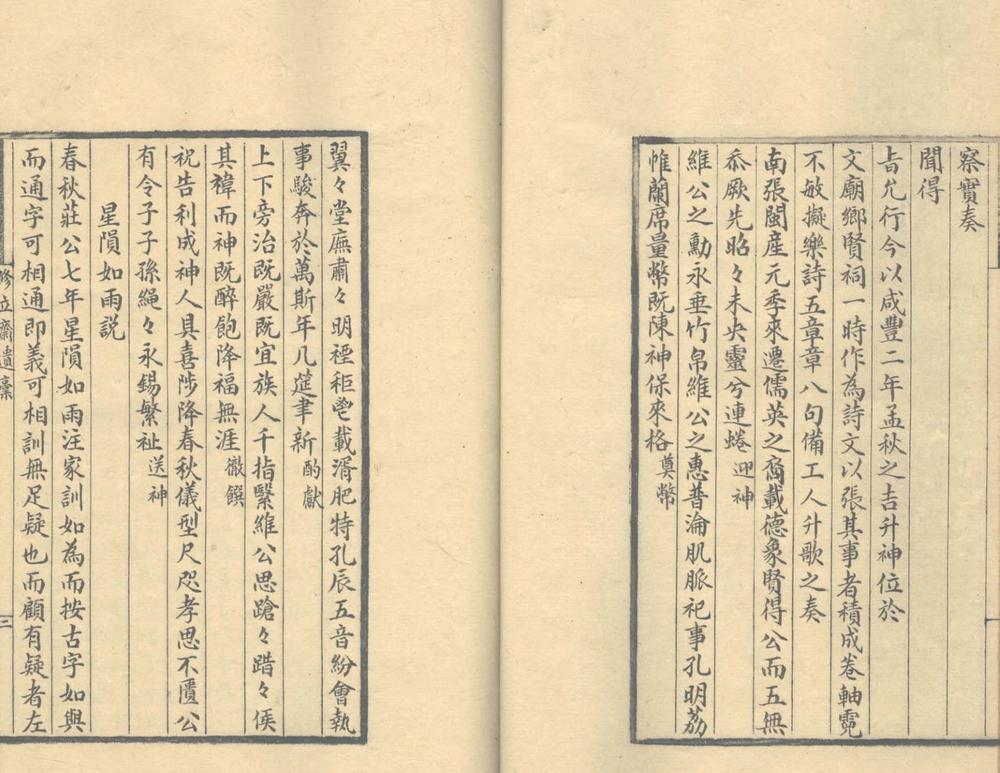 察實奏
聞得
旨允行今以咸豐二年孟秋之吉升神位於
文廟鄉賢祠一時作為詩文以張其事者積成卷軸霓
不敏擬樂詩五章章八句備工人升歌之奏
南張閩産元季來遷儒英之裔載德象賢得公而五無
忝厥先昭々未央靈兮連蜷 迎神
維公之勳永垂竹帛維公之惠普淪肌脈祀事孔明荔
帷蘭席量幣既陳神保來格 奠幣
翼々堂廡肅々明禋秬鬯載湑肥特孔辰五音紛會執
事駿奔於萬斯年几筵聿新 酌獻
上下旁治既嚴既宜族人千指緊維公思蹌々踖々俟
其禕而神既醉飽降福無涯 徹饌
祝告利成神人具喜陟降春秋儀型尺咫孝思不匱公
有令子子孫繩々永錫繁祉 送神
星隕如雨説
春秋莊公七年星隕如雨注家訓如為而按古字如與
而通字可相通即義可相訓無足疑也而顧有疑者左
修立齋遺稾
三